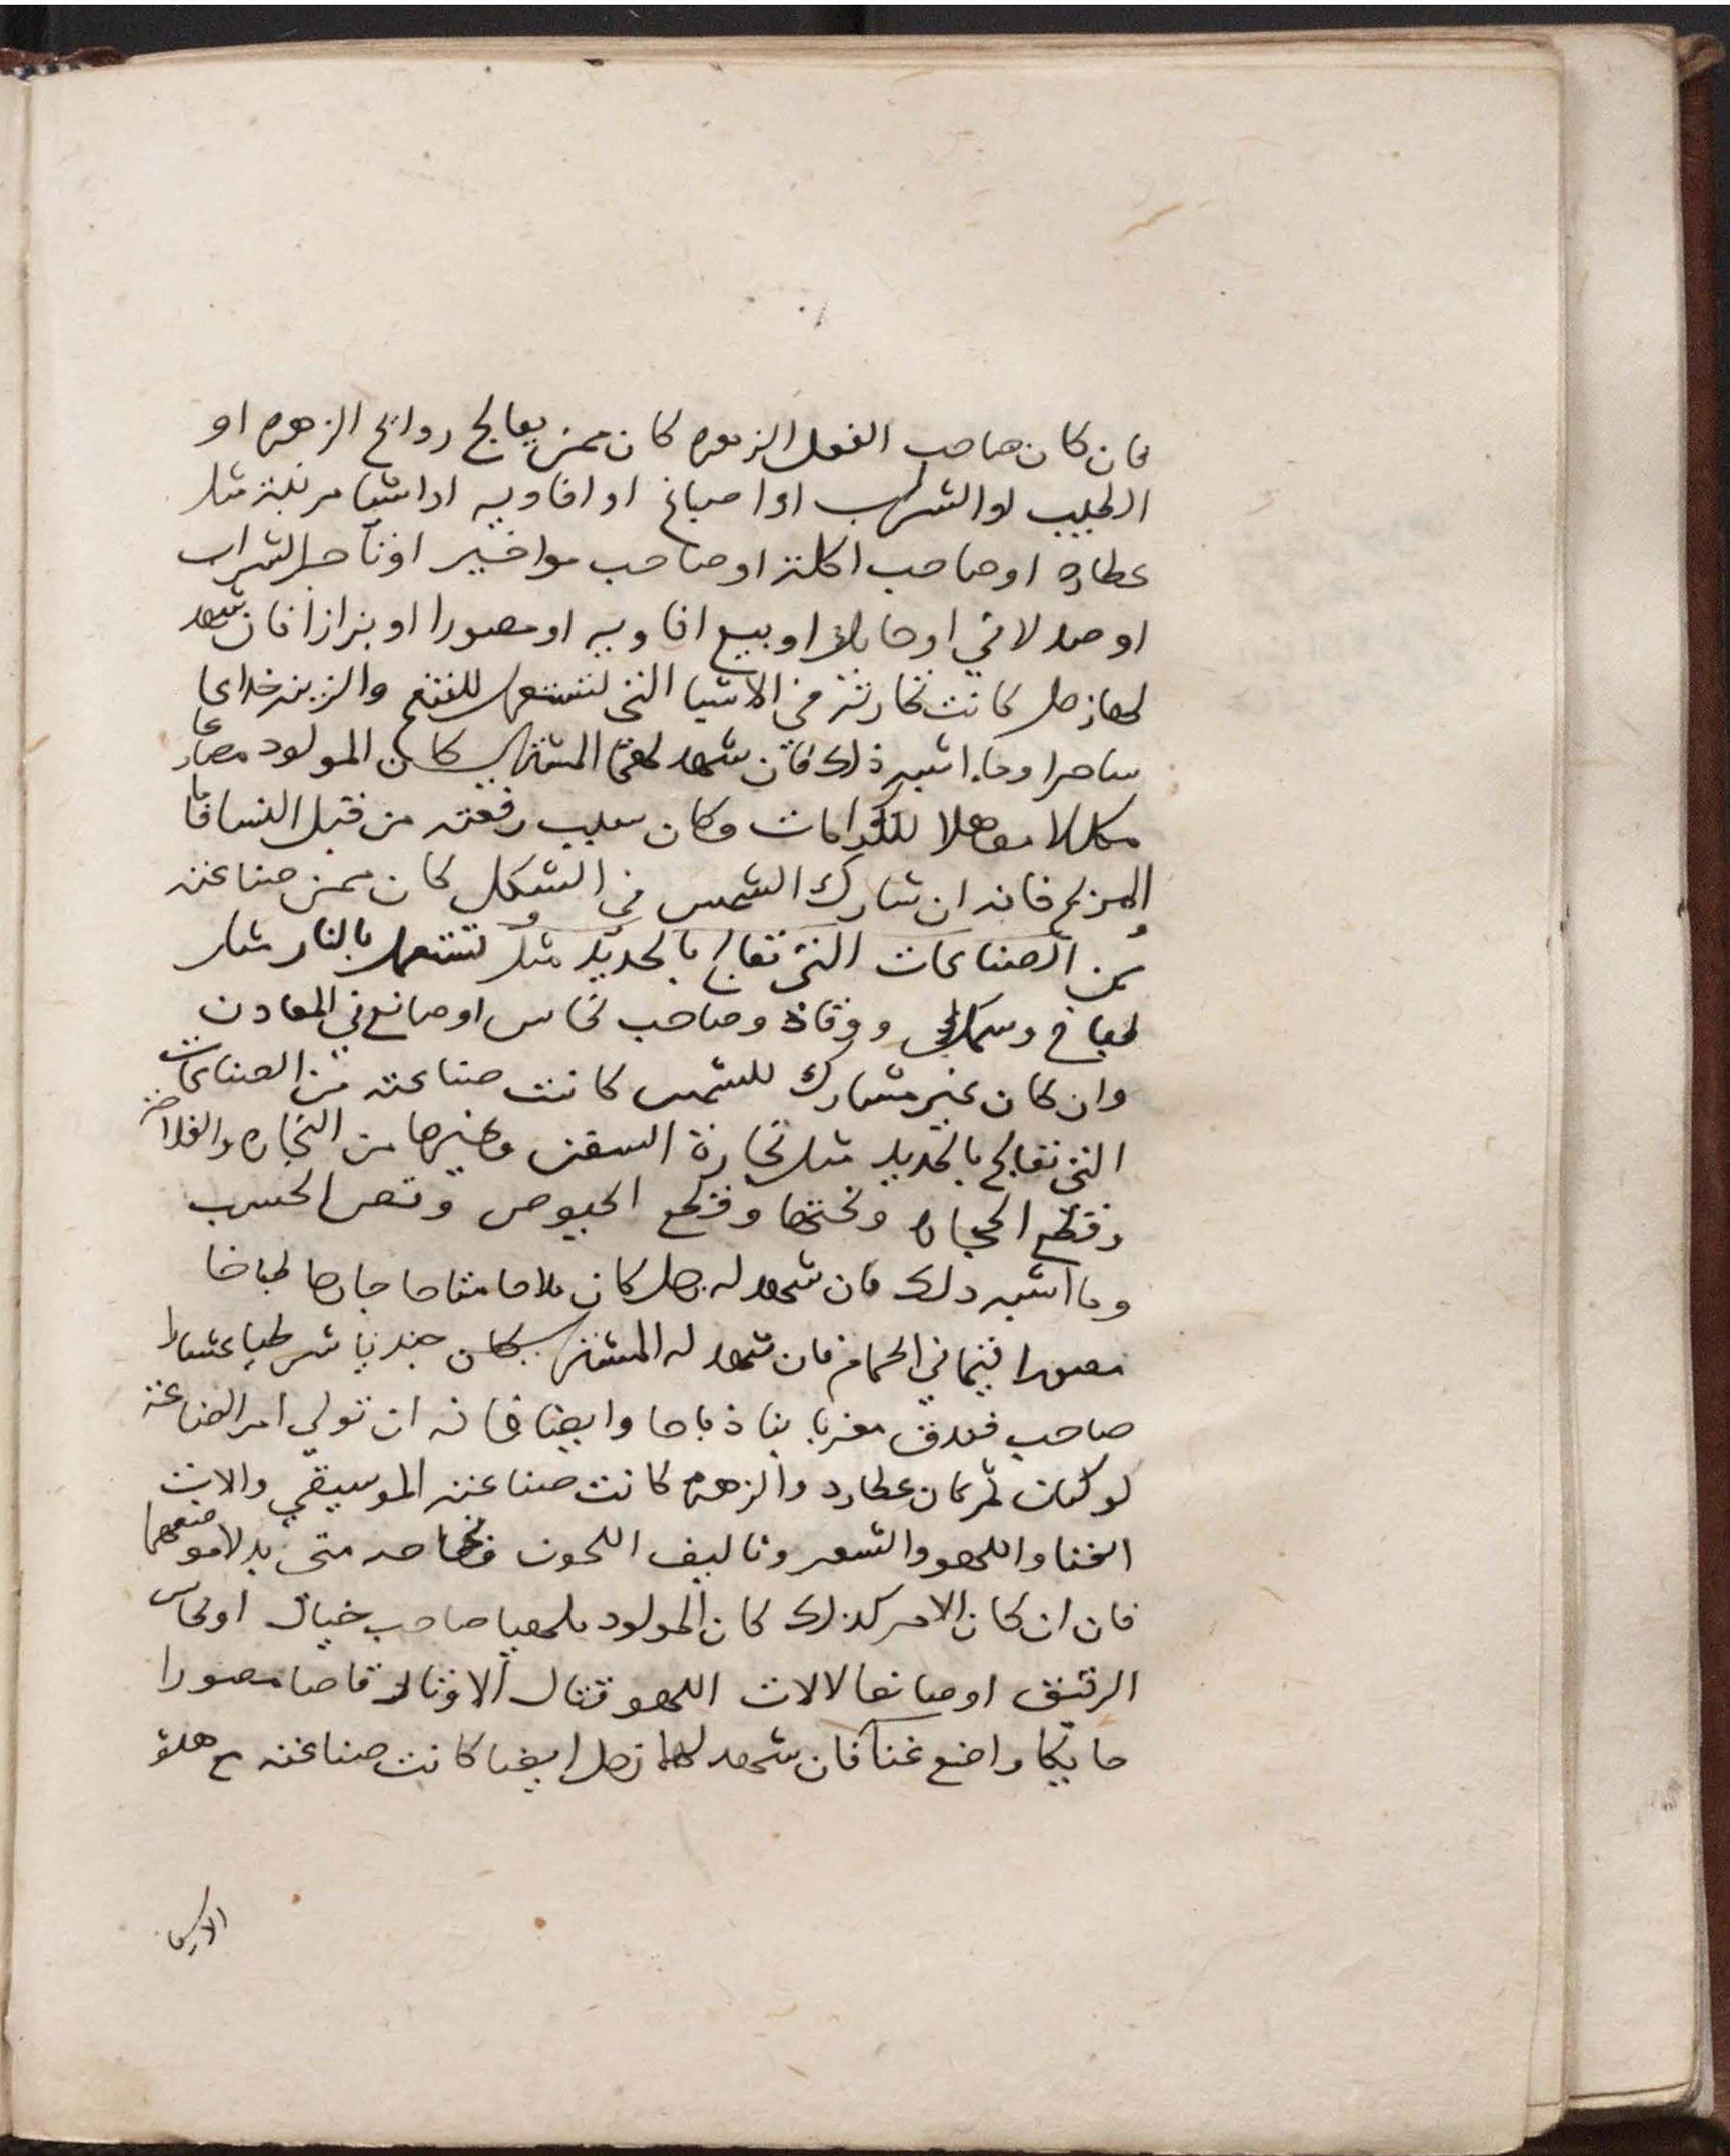 فان كان صاحب الفعل الزهره كان ممن يعالج روائح الزهره او
الطيب او الشراب او اصباغ او افاويه او اشيا مرنبة مثل
عطاره او صاحب اكلة او صاحب مواخير او تاجر الشراب
او صيدلاني او حايك او بيع افاويه او مصورا او بزازا فان شهد
لها زحل كانت تجارته في الاشيا التي تستعمل للتنعم والزينه خداعا
ساحرا وما اشبه ذلك فان شهد لهما المشتري كان المولود
مكللا موهلا للكرامات وكان سبب رفعته من قبل النسا فاما
المريخ فانه ان شارك الشمس في الشكل كان ممن صناعته
من الصناعات التي تعالج بالحديد مثل تستعمل بالنار مثل
طباخ وسباك ووقاد وصاحب نحاس او صانع في المعادن
وان كان غير مشارك للشمس كانت صناعته من الصناعات
التي تعالج بالحديد مثل نجارة السفن وغيرها من النجاره والفلاحه
وقطع الحجاره ونحتها وقطع الحبوص وقص الخسب
وما اشبه دلك فان شهد له زحل كان ملاحا متاحا جارحا طباخا
مصورا قيما في الحمام فان شهد له المشتري كان جنديا شرطيا عشارا
صاحب فندق معزيا بنا ذباحا وايضا فانه ان تولي امر الصناعة
كوكبان ثم كان عطارد والزهره كانت صناعته الموسيقي والات
الغنا واللهو والشعر وتاليف اللحون وبخاصه متى بدلا موضعهما
فان ان كان الامر كذلك كان المولود ملهيا صاحب خيال او نخاس
الرقيق او صانعا لالات اللهو قتال الاوتار قاصا مصورا
حايكا واضع غنا فان شهد لهما زحل ايضا كانت صناعته مع هذه
الاشيا